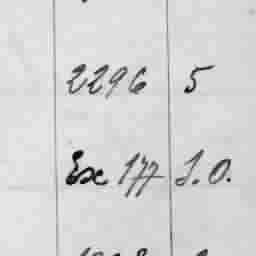 2296 5
Ex 177 S.O.